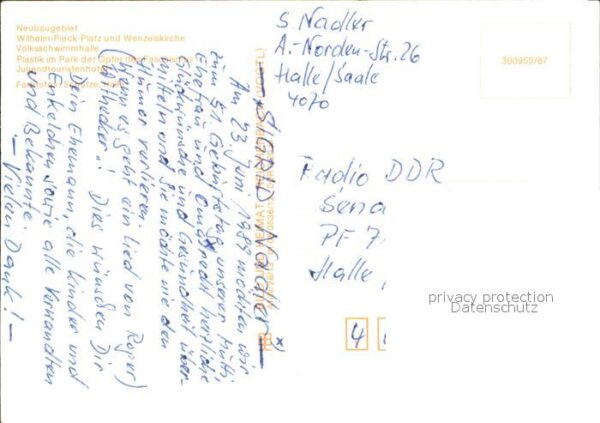 Neubaugebiet
Wilhelm-Pieck-Platz und Wenzelskirche
Volksschwimmhalle
Plastik im Park der Opfer des Faschismus
Jugendtouristenhotel
300955/87
S. Nadler
A.-Norden-Str. 26
Halle/Saale
4070
Radio DDR
PF 7
Halle,
4
privacy protection
Datenschutz
- SIGRID Nadler -
Am 23. Juni 1989 möchten wir
zum 51. Geburtstag unserer Mutti,
Ehefrau und Oma recht herzliche
Glückwünsche und Gesundheit über-
mitteln und sie möchte nie den
Humor verlieren.
(Wenn es geht ein Lied von Roger)
Whittacker! Dies wünschen Dir
Dein Ehemann, die Kinder und
Enkelchen sowie alle Verwandten
und Bekannte.
- Vielen Dank! -